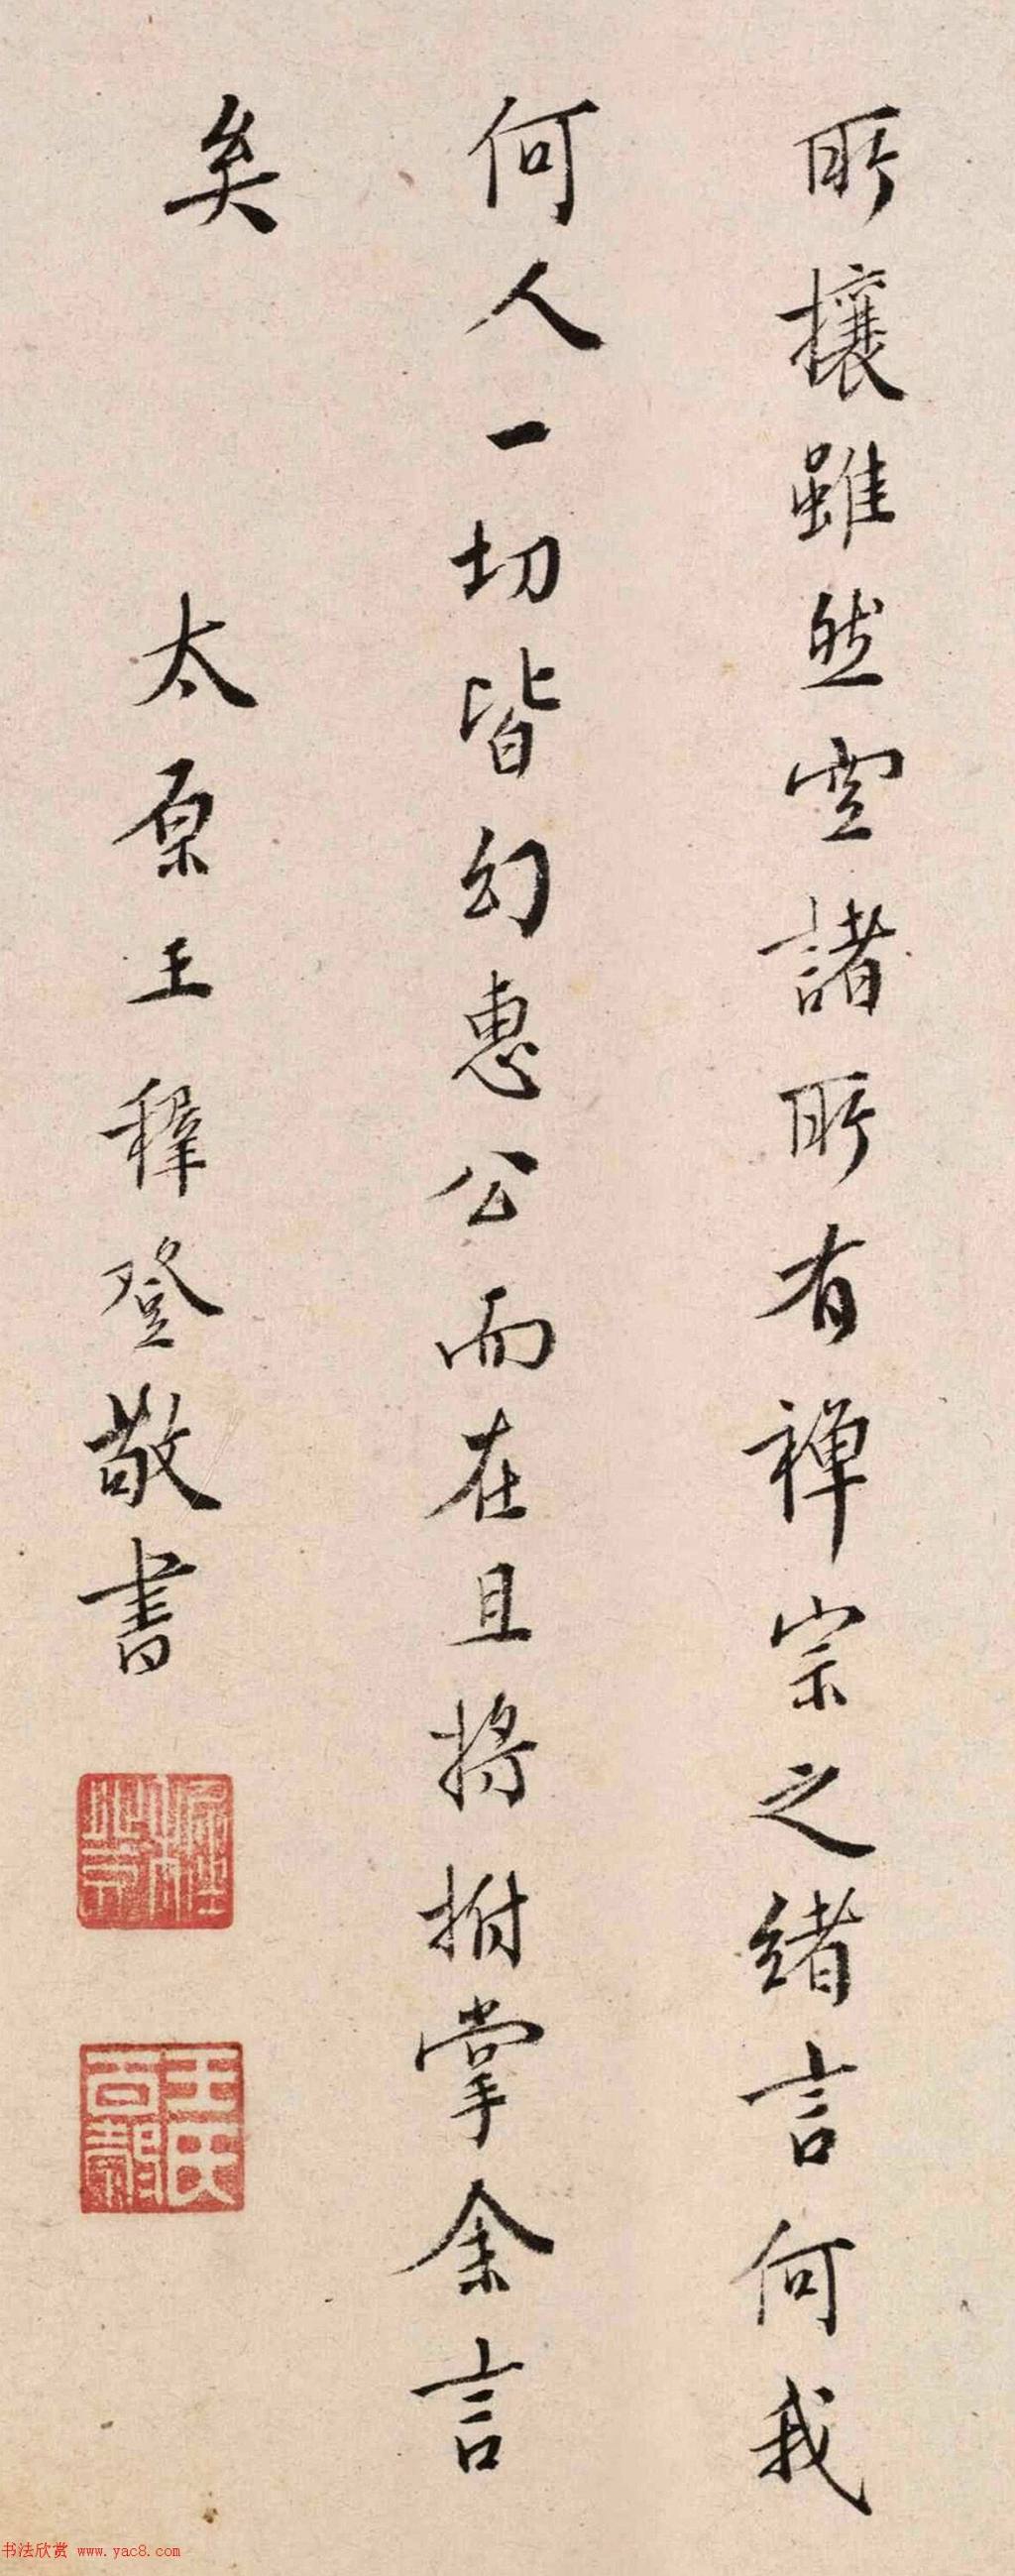 所攘雖然空諸所有禪宗之緒言何我
何人一切皆幻惠公而在且將拊掌余言
矣
太原王穉登敬書
王氏百穀
书法欣赏 www.yac8.com